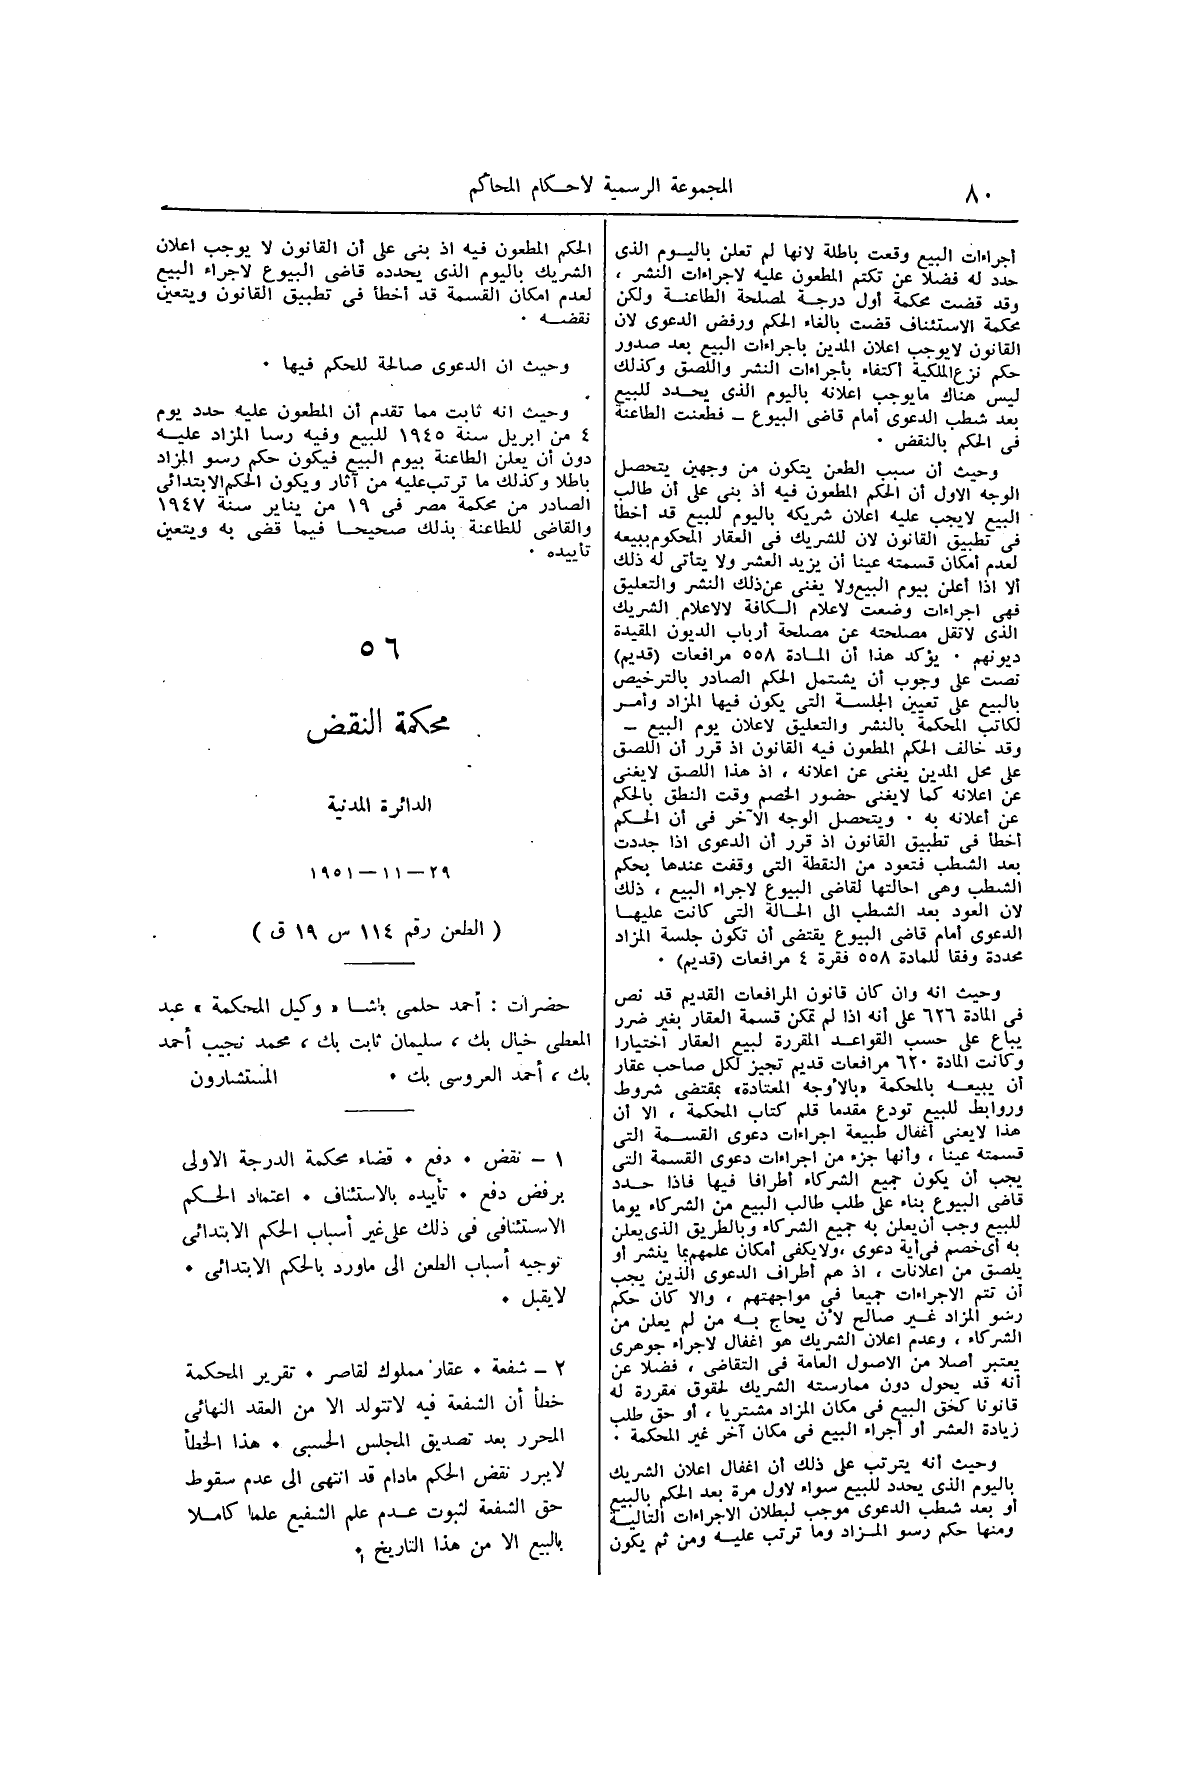 ٨٠
المجموعة الرسمية لاحكام المحاكم
أجراءات البيع وقعت باطلة لانها لم تعلن باليوم الذى
حدد له فضلا عن تكتم المطعون عليه لاجراءات النشر ،
وقد قضت محكمة أول درجة لمصلحة الطاعنة ولكن
محكمة الاستئناف قضت بالغاء الحكم ورفض الدعوى لان
القانون لايوجب اعلان المدين باجراءات البيع بعد صدور
حكم نزع الملكية أكتفاء بأجراءات النشر واللصق وكذلك
ليس هناك مايوجب اعلانه باليوم الذى يحدد للبيع
بعد شطب الدعوى أمام قاضى البيوع – فطعنت الطاعنة
فى الحكم بالنقض ٠
وحيث أن سبب الطعن يتكون من وجهين يتحصل
الوجه الاول أن الحكم المطعون فيه أذ بنى على أن طالب
البيع لايجب عليه اعلان شريكه باليوم للبيع قد أخطأ
فى تطبيق القانون لان للشريك فى العقار المحكوم ببيعه
لعدم أمكان قسمته عينا أن يزيد العشر ولا يتأتى له ذلك
ألا اذا أعلن بيوم البيع ولا يغنى عن ذلك النشر والتعليق
فهى اجراءات وضعت لاعلام الكافة لالاعلام الشريك
الذى لاتقل مصلحته عن مصلحة أرباب الديون المقيدة
ديونهم ٠ يؤكد هذا أن المادة ٥٥٨ مرافعات (قديم)
نصت على وجوب أن يشتمل الحكم الصادر بالترخيص
بالبيع على تعيين الجلسة التى يكون فيها المزاد وأمر
لكاتب المحكمة بالنشر والتعليق لاعلان يوم البيع –
وقد خالف الحكم المطعون فيه القانون اذ قرر أن اللصق
على محل المدين يغنى عن اعلانه ، اذ هذا اللصق لايغنى
عن اعلانه كما لايغنى حضور الخصم وقت النطق بالحكم
عن أعلانه به ٠ ويتحصل الوجه الآخر فى أن الحكم
أخطأ فى تطبيق القانون اذ قرر أن الدعوى اذا جددت
بعد الشطب فتعود من النقطة التى وقفت عندها بحكم
الشطب وهى احالتها لقاضى البيوع لاجراء البيع ، ذلك
لان العود بعد الشطب الى الحالة التى كانت عليها
الدعوى أمام قاضى البيوع يقتضى أن تكون جلسة المزاد
محددة وفقا للمادة ٥٥٨ فقرة ٤ مرافعات (قديم) ٠
وحيث انه وان كان قانون المرافعات القديم قد نص
فى المادة ٦٢٦ على أنه اذا لم تمكن قسمة العقار بغير ضرر
يباع على حسب القواعد المقررة لبيع العقار أختيارا
وكانت المادة ٦٢٠ مرافعات قديم تجيز لكل صاحب عقار
أن يبيعه بالمحكمة «بالأوجه المعتادة» بمقتضى شروط
وروابط للبيع تودع مقدما قلم كتاب المحكمة ، الا أن
هذا لايعنى أغفال طبيعة اجراءات دعوى القسمة التى
قسمته عينا ، وأنها جزء من اجراءات دعوى القسمة التى
يجب أن يكون جميع الشركاء أطرافا فيها فاذا حدد
قاضى البيوع بناء على طلب طالب البيع من الشركاء يوما
للبيع وجب أن يعلن به جميع الشركاء وبالطريق الذى يعلن
به أى خصم فى أية دعوى ،ولايكفى أمكان علمهم بما ينشر أو
يلصق من اعلانات ، اذ هم أطراف الدعوى الذين يجب
أن تتم الاجراءات جميعا فى مواجهتهم ، والا كان حكم
رسو المزاد غير صالح لأن يحاج به من لم يعلن من
الشركاء ، وعدم اعلان الشريك هو اغفال لاجراء جوهرى
يعتبر أصلا من الاصول العامة فى التقاضى ، فضلا عن
أنه قد يحول دون ممارسته الشريك لحقوق مقررة له
قانونا كحق البيع فى مكان المزاد مشتريا ، أو حق طلب
زيادة العشر أو أجراء البيع فى مكان آخر غير المحكمة ٠
وحيث أنه يترتب على ذلك أن اغفال اعلان الشريك
باليوم الذى يحدد للبيع سواء لاول مرة بعد الحكم بالبيع
أو بعد شطب الدعوى موجب لبطلان الاجراءات التالية
ومنها حكم رسو المزاد وما ترتب عليه ومن ثم يكون
الحكم المطعون فيه اذ بنى على أن القانون لا يوجب اعلان
الشريك باليوم الذى يحدده قاضى البيوع لاجراء البيع
لعدم امكان القسمة قد أخطأ فى تطبيق القانون ويتعين
نقضه ٠
وحيث ان الدعوى صالحة للحكم فيها ٠
وحيث انه ثابت مما تقدم أن المطعون عليه حدد يوم
٤ من ابريل سنة ١٩٤٥ للبيع وفيه رسا المزاد عليه
دون أن يعلن الطاعنة بيوم البيع فيكون حكم رسو المزاد
باطلا وكذلك ما ترتب عليه من آثار ويكون الحكم الابتدائى
الصادر من محكمة مصر فى ١٩ من يناير سنة ١٩٤٧
والقاضى للطاعنة بذلك صحيحا فيما قضى به ويتعين
تأييده ٠
٥٦
محكمة النقض
الدائرة المدنية
٢٩ – ١١ – ١٩٥١
( الطعن رقم ١١٤ س ١٩ ق )
حضرات : أحمد حلمى باشا « وكيل المحكمة » عبد
المعطى خيال بك ، سليمان ثابت بك ، محمد نجيب أحمد
بك ، أحمد العروسى بك ٠ المستشارون
١ – نقض ٠ دفع ٠ قضاء محكمة الدرجة الاولى
برفض دفع ٠ تأييده بالاستئناف ٠ اعتماد الحكم
الاستئنافى فى ذلك على غير أسباب الحكم الابتدائى
توجيه أسباب الطعن الى ماورد بالحكم الابتدائى ٠
لايقبل ٠
٢ – شفعة ٠ عقار مملوك لقاصر ٠ تقرير المحكمة
خطأ أن الشفعة فيه لاتتولد الا من العقد النهائى
المحرر بعد تصديق المجلس الحسبى ٠ هذا الخطأ
لايبرر نقض الحكم مادام قد انتهى الى عدم سقوط
حق الشفعة لثبوت عدم علم الشفيع علما كاملا
بالبيع الا من هذا التاريخ ٠